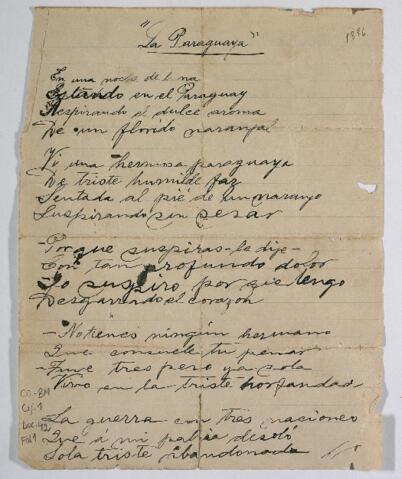 "La Paraguaya"
1996
En una noche de luna
Estando en el Paraguay
Respirando el dulce aroma
De un florido naranjal
Vi una hermosa paraguaya
De triste humilde faz
Sentada al pié de un naranjo
Suspirando sin cesar
-Por que suspiras-le dije-
Con tan profundo dolor
Yo suspiro, por que tengo
Desgarrando el corazon
-No tienes ningún hermano
Que consuele tu penar
-Tuve tres pero ya sola
Vivo en la triste horfandad
La guerra con tres naciones
Que a mi patria desoló
Sola triste abandonada
CO-BM
Cj.1
Doc.42
Fol 1